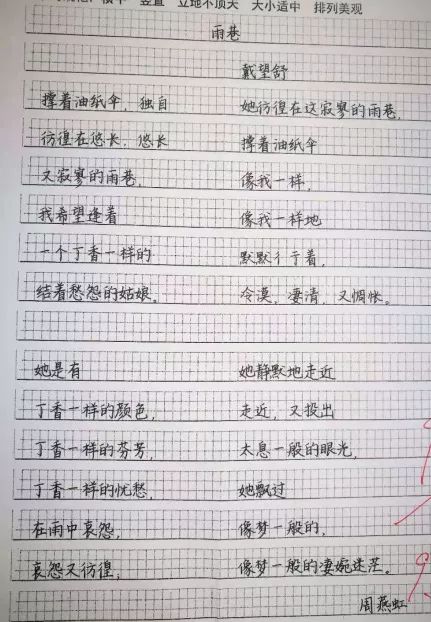 竖直 立地不顶天 大小适中 排列美观
雨巷
戴望舒
撑着油纸伞，独自
彷徨在悠长，悠长
又寂寥的雨巷，
我希望逢着
一个丁香一样的
结着愁怨的姑娘。
她是有
丁香一样的颜色，
丁香一样的芬芳，
丁香一样的忧愁，
在雨中哀怨，
哀怨又彷徨；
她彷徨在这寂寥的雨巷，
撑着油纸伞
像我一样，
像我一样地
默默彳亍着，
冷漠，凄清，又惆怅。
她静默地走近
走近，又投出
太息一般的眼光，
她飘过
像梦一般的，
像梦一般的凄婉迷茫。
周燕虹